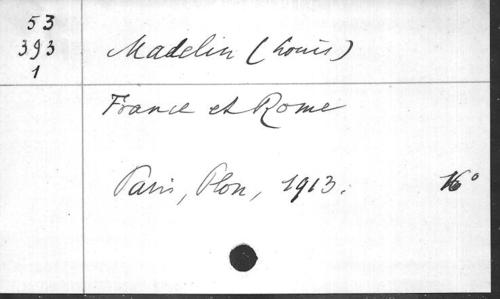 53
393
1
Madelin (Louis)
France et Rome
Paris, Plon, 1913. 16°